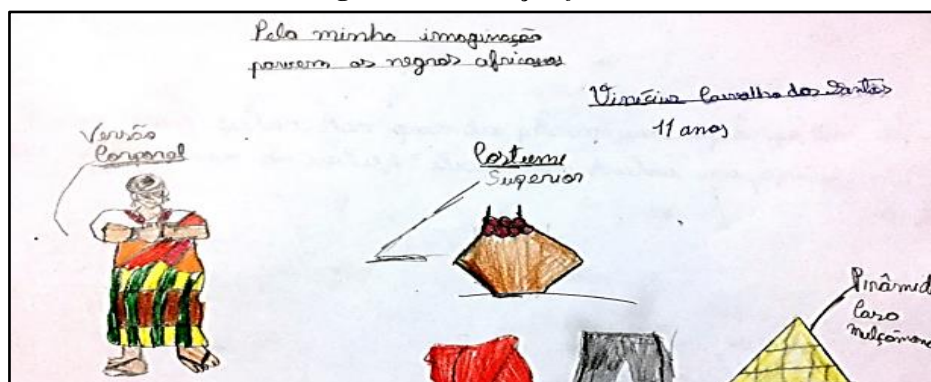 Pela minha imaginação
parecem os negros africanos
Vinícius Carvalho dos Santos
11 anos
Versão
Corporal
Costume
Superior
Pirâmid